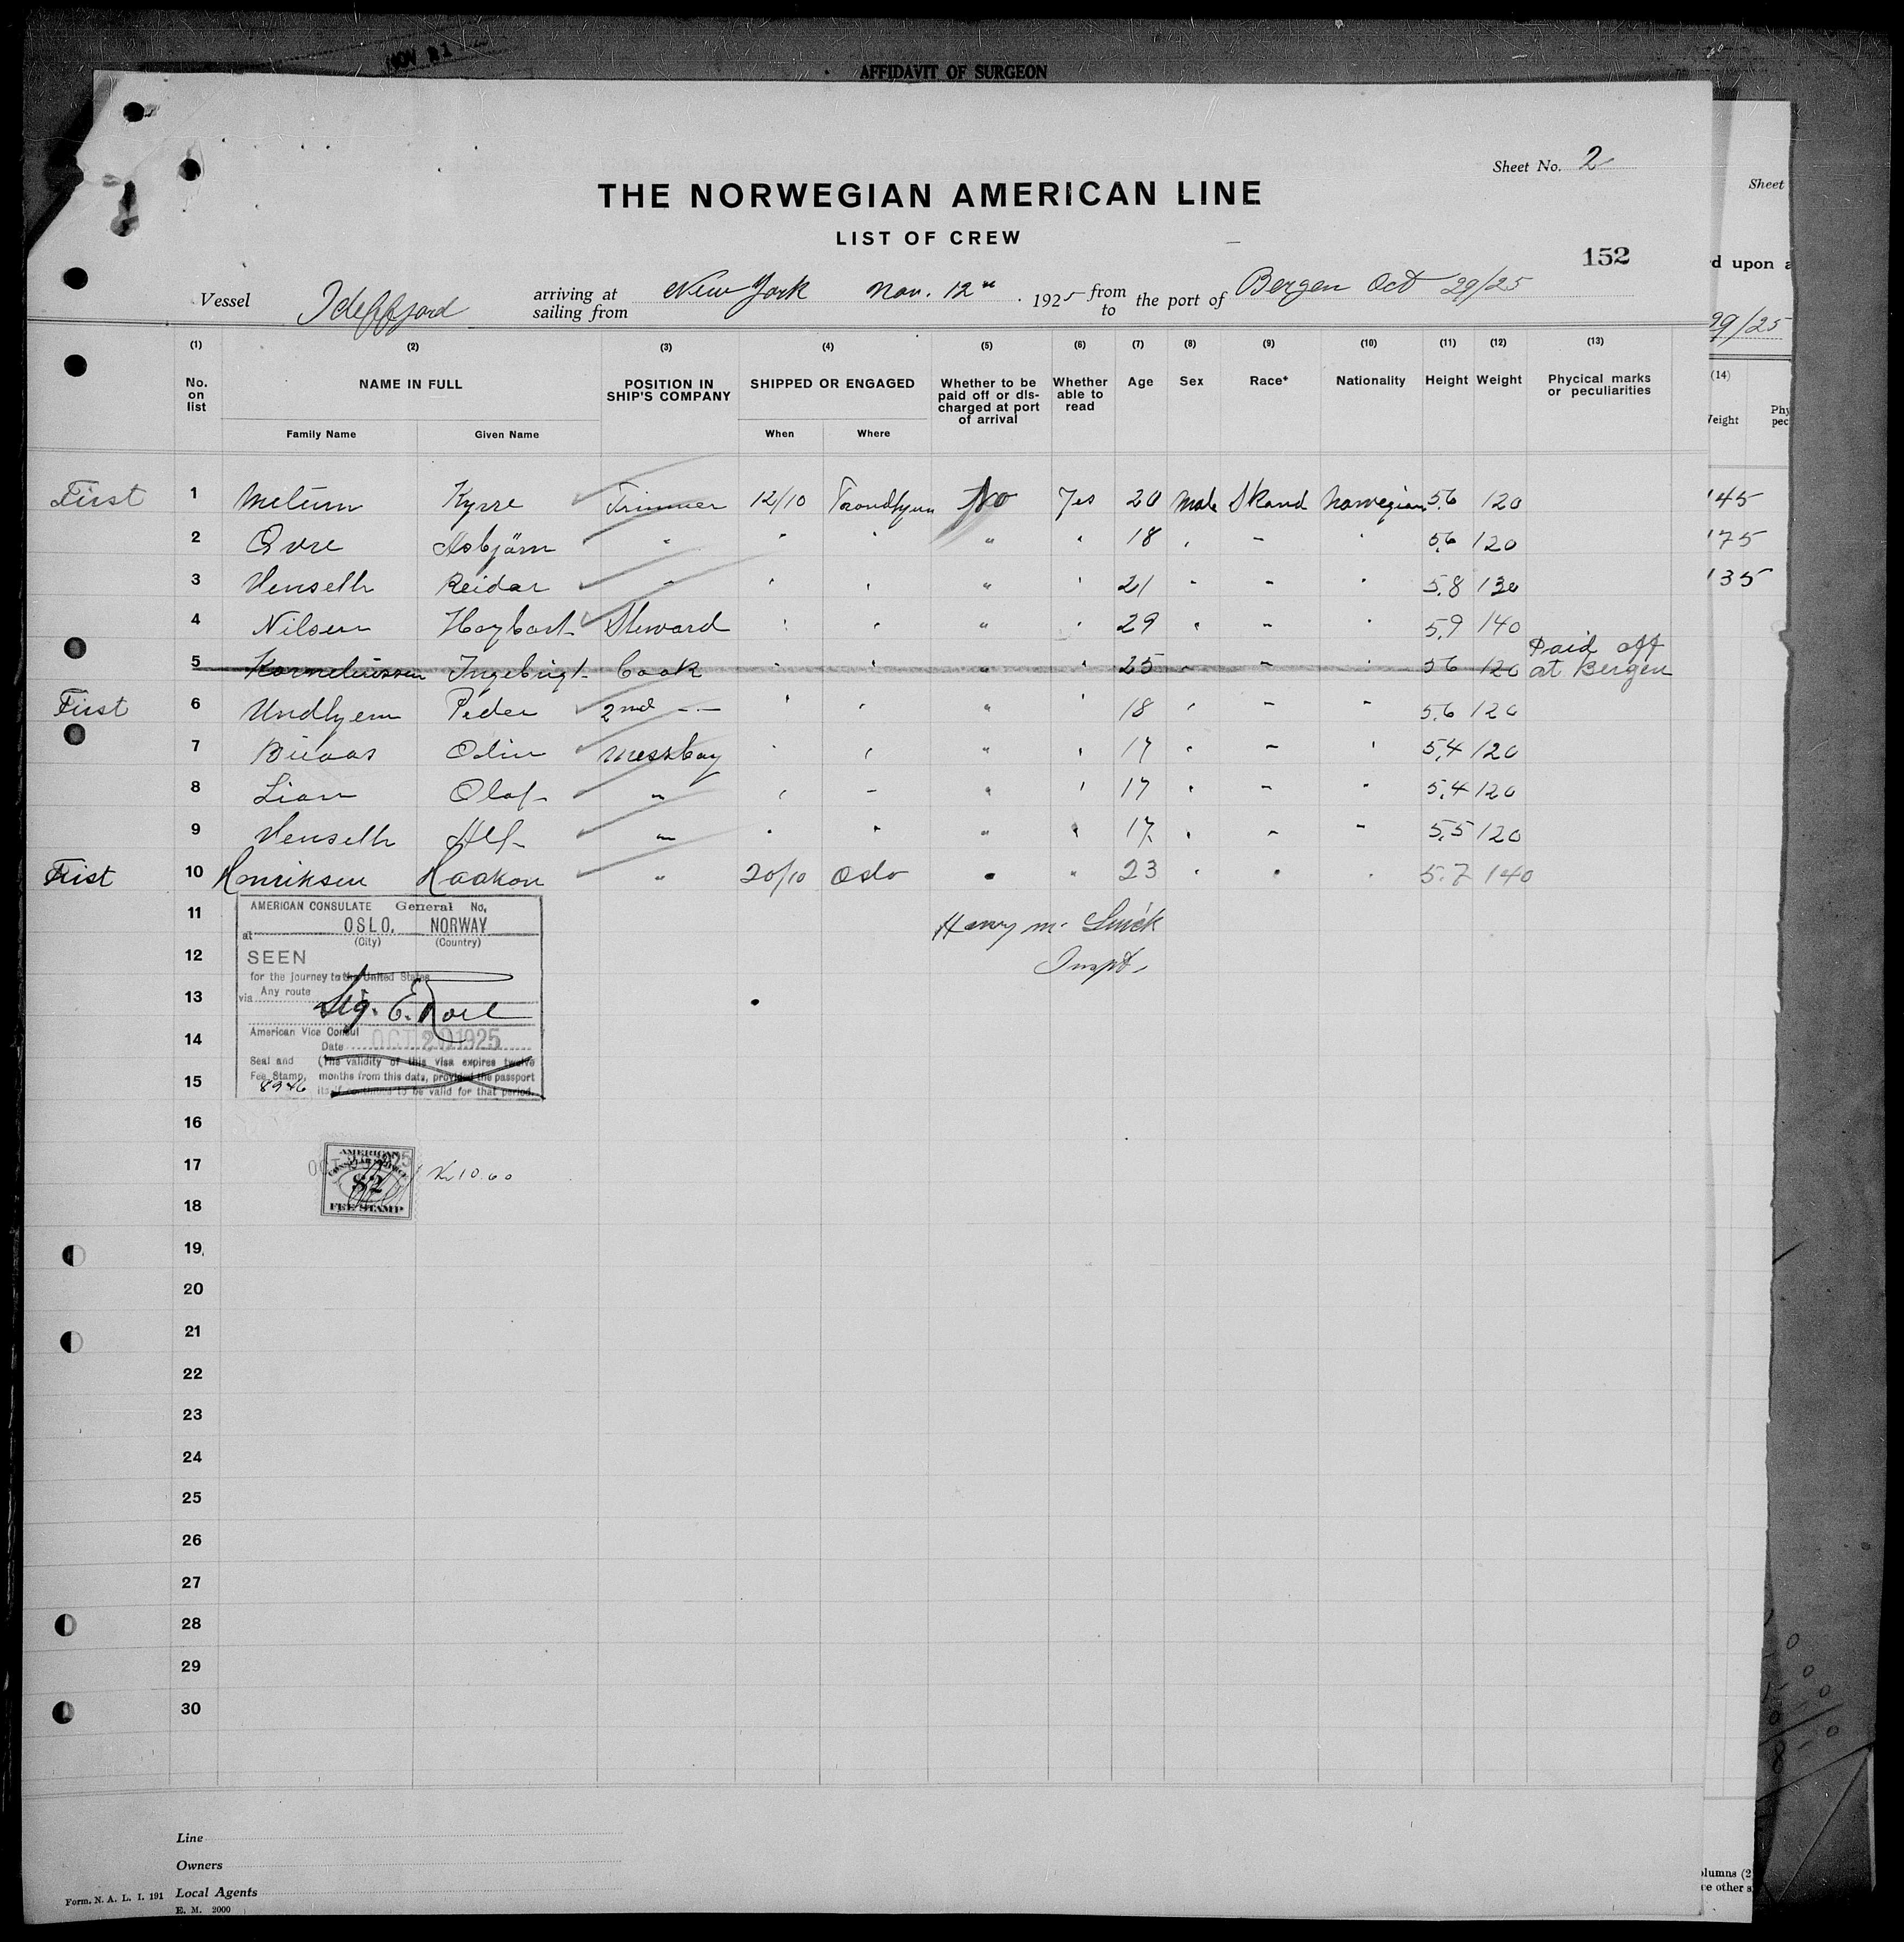 NOV 21
AFFIDAVIT OF SURGEON
Sheet No. 2
Sheet
THE NORWEGIAN AMERICAN LINE
LIST OF CREW
152
d upon a
Vessel Idefjord arriving at sailing from New York Nov. 12th 1925 from to the port of Bergen Oct 29/25
29/25
(1) (2) (3) (4) (5) (6) (7) (8) (9) (10) (11) (12) (13)
(14)
No. on list NAME IN FULL POSITION IN SHIP'S COMPANY SHIPPED OR ENGAGED Whether to be paid off or dis-charged at port of arrival Whether able to read Age Sex Race* Nationality Height Weight Phycical marks or peculiarities
Family Name Given Name When Where
First 1 Melum Kyrre Trimmer 12/10 Trondhjem No Yes 20 Male Skand Norwegian 5.6 120
145
2 Qvre Asbjörn " " " " " 18 " " " 5.6 120
175
3 Venseth Reidar " " " " " 21 " " " 5.8 130
135
4 Nilsen Haybart Steward " " " " 29 " " " 5.9 140
5 Korneliussen Ingebrigt Cook " " " " 25 " " " 5.6 120 Paid off at Bergen
First 6 Undhjem Peder 2nd " " " " " 18 " " " 5.6 120
7 Buaas Odin Messboy " " " " 17 " " " 5.4 120
8 Lian Olaf " " " " " 17 " " " 5.4 120
9 Venseth Alf " " " " " 17 " " " 5.5 120
First 10 Henriksen Haakon " 20/10 Oslo " " 23 " " " 5.7 140
11
Henry M.
Inspt.
12
13
14
15
AMERICAN CONSULATE General No.
at OSLO, NORWAY
(City) (Country)
SEEN
for the journey to the United States
via Any route
Sig. E.
American Vice Consul
Date OCT 20 1925
Seal and Fee Stamp. (The validity of this visa expires twelve
months from this date, provided the passport
itself continues to be valid for that period.
8946
16
17
18
AMERICAN
CONSULAR SERVICE
$2
FEE STAMP
Kr 10.60
19
20
21
22
23
24
25
26
27
28
29
30
Line
Owners
Form. N. A. L. I. 191 Local Agents
E. M. 2000